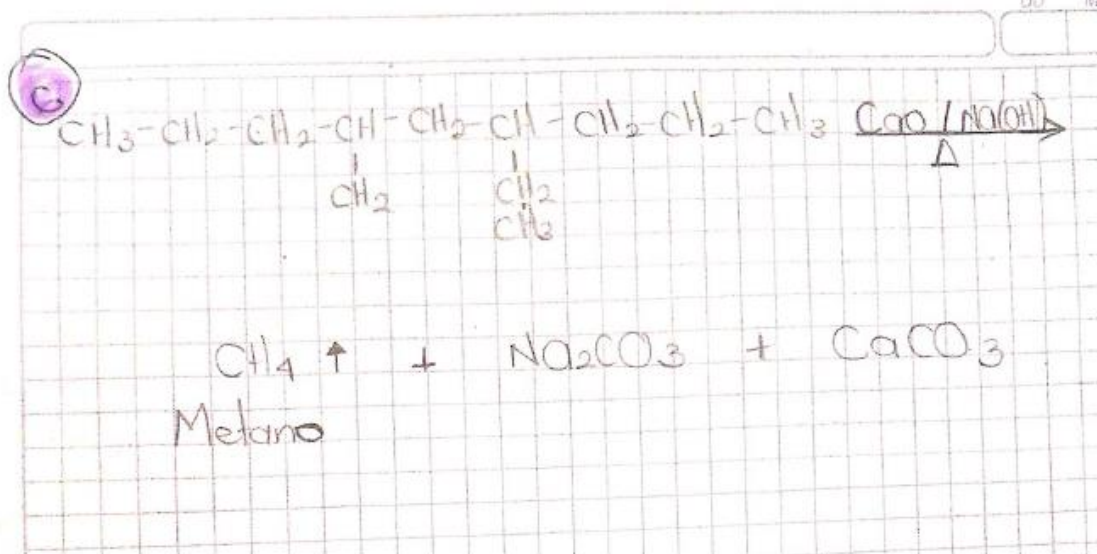 C
CH3-CH2-CH2-CH-CH2-CH-CH2-CH2-CH3 CaO / Na(OH)
Δ
CH2 CH2
CH3
CH4 ↑ + Na2CO3 + CaCO3
Metano